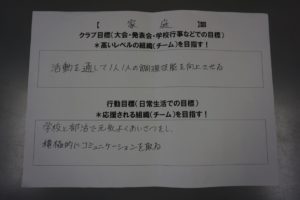 【 家 庭 】
クラブ目標(大会・発表会・学校行事などでの目標)
*高いレベルの組織(チーム)を目指す！
活動を通して1人1人の調理技能を向上させる
行動目標(日常生活での目標)
*応援される組織(チーム)を目指す！
学校と部活で元気よくあいさつをし、
積極的にコミュニケーションを取る